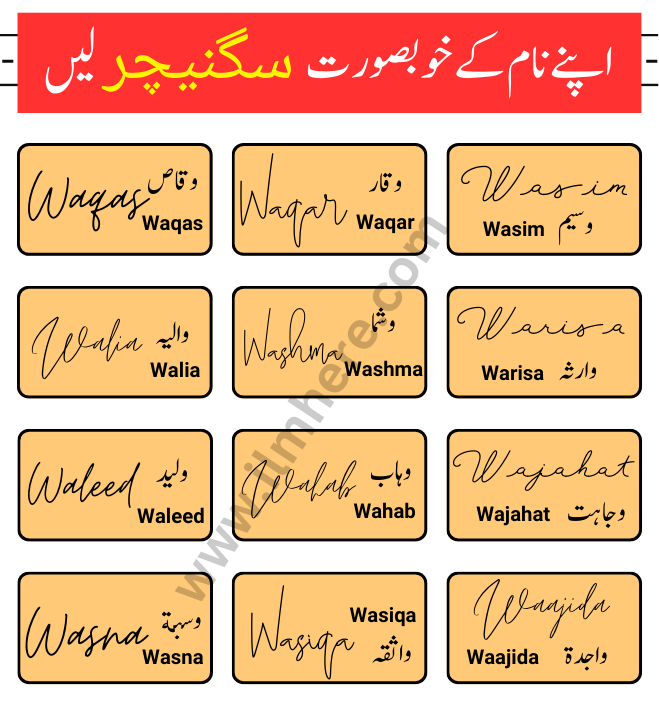 اپنے نام کے خوبصورت سگنیچر لیں
Waqas وقاص
Waqas
Waqar وقار
Waqar
Wasim
Wasim وسیم
Walia والیہ
Walia
Washma وشما
Washma
Warisa
Warisa وارثہ
Waleed ولید
Waleed
Wahab وہاب
Wahab
Wajahat
Wajahat وجاہت
Wasna
Wasna
Wasiqa
Wasiqa
واثقہ
Waajida
Waajida واجدة
www.ilmhere.com